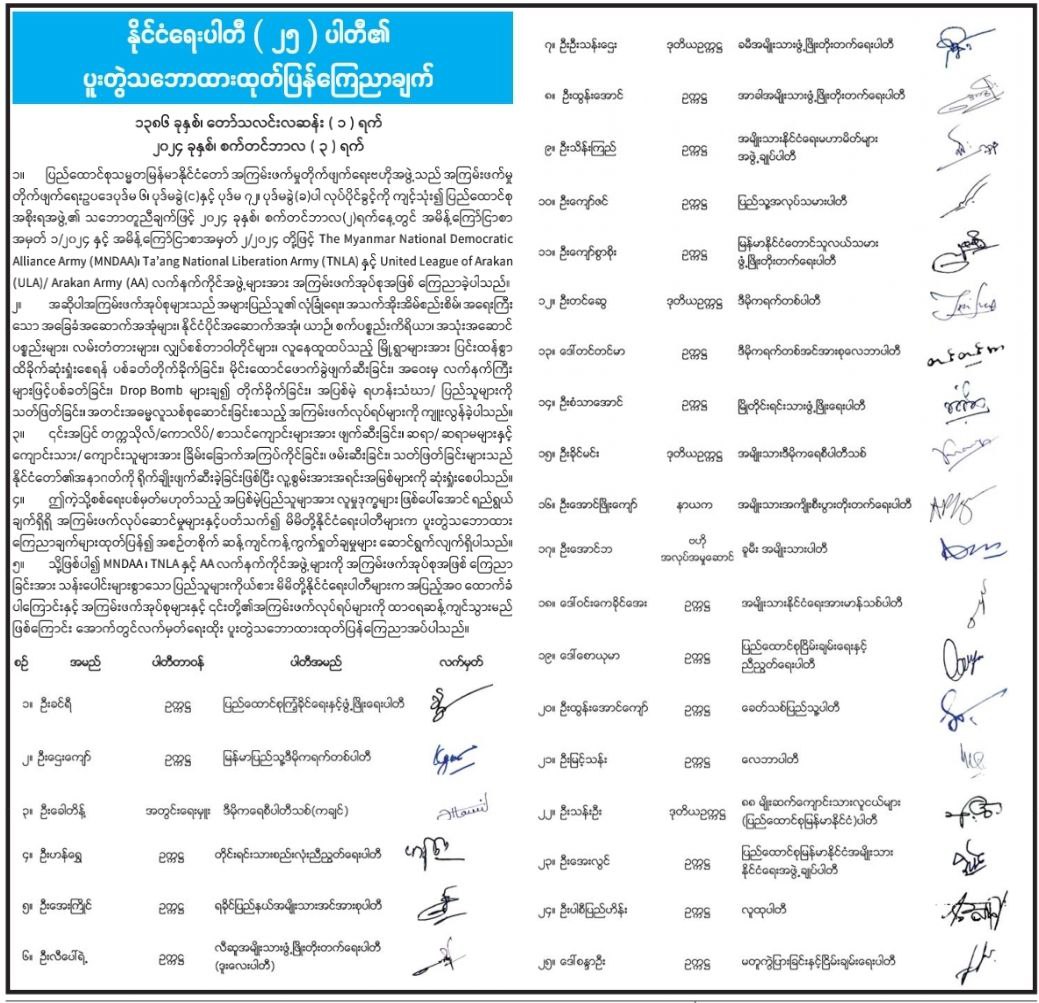 နိုင်ငံရေးပါတီ ( ၂၅ ) ပါတီ၏
ပူးတွဲသဘောထားထုတ်ပြန်ကြေညာချက်
၁၃၈၆ ခုနှစ်၊ တော်သလင်းလဆန်း ( ၁ ) ရက်
၂၀၂၄ ခုနှစ်၊ စက်တင်ဘာလ ( ၃ ) ရက်
၁။ ပြည်ထောင်စုသမ္မတမြန်မာနိုင်ငံတော် အကြမ်းဖက်မှုတိုက်ဖျက်ရေးဗဟိုအဖွဲ့သည် အကြမ်းဖက်မှု
တိုက်ဖျက်ရေးဥပဒေပုဒ်မ ၆၊ ပုဒ်မခွဲ(င)နှင့် ပုဒ်မ ၇၂၊ ပုဒ်မခွဲ(ခ)ပါ လုပ်ပိုင်ခွင့်ကို ကျင့်သုံး၍ ပြည်ထောင်စု
အစိုးရအဖွဲ့၏ သဘောတူညီချက်ဖြင့် ၂၀၂၄ ခုနှစ်၊ စက်တင်ဘာလ(၂)ရက်နေ့တွင် အမိန့်ကြော်ငြာစာ
အမှတ် ၁/၂၀၂၄ နှင့် အမိန့်ကြော်ငြာစာအမှတ် ၂/၂၀၂၄ တို့ဖြင့် The Myanmar National Democratic
Alliance Army (MNDAA)၊ Ta’ang National Liberation Army (TNLA) နှင့် United League of Arakan
(ULA)/ Arakan Army (AA) လက်နက်ကိုင်အဖွဲ့များအား အကြမ်းဖက်အုပ်စုအဖြစ် ကြေညာခဲ့ပါသည်။
၂။ အဆိုပါအကြမ်းဖက်အုပ်စုများသည် အများပြည်သူ၏ လုံခြုံရေး၊ အသက်အိုးအိမ်စည်းစိမ်၊ အရေးကြီး
သော အခြေခံအဆောက်အအုံများ၊ နိုင်ငံပိုင်အဆောက်အအုံ၊ ယာဉ်၊ စက်ပစ္စည်းကိရိယာ၊ အသုံးအဆောင်
ပစ္စည်းများ၊ လမ်းတံတားများ၊ လျှပ်စစ်တာဝါတိုင်များ၊ လူနေထူထပ်သည့် မြို့ရွာများအား ပြင်းထန်စွာ
ထိခိုက်ဆုံးရှုံးစေရန် ပစ်ခတ်တိုက်ခိုက်ခြင်း၊ မိုင်းထောင်ဖောက်ခွဲဖျက်ဆီးခြင်း၊ အဝေးမှ လက်နက်ကြီး
များဖြင့်ပစ်ခတ်ခြင်း၊ Drop Bomb များချ၍ တိုက်ခိုက်ခြင်း၊ အပြစ်မဲ့ ရဟန်းသံဃာ/ ပြည်သူများကို
သတ်ဖြတ်ခြင်း၊ အတင်းအဓမ္မလူသစ်စုဆောင်းခြင်းစသည့် အကြမ်းဖက်လုပ်ရပ်များကို ကျူးလွန်ခဲ့ပါသည်။
၃။ ၎င်းအပြင် တက္ကသိုလ်/ကောလိပ်/ စာသင်ကျောင်းများအား ဖျက်ဆီးခြင်း၊ ဆရာ/ ဆရာမများနှင့်
ကျောင်းသား/ ကျောင်းသူများအား ခြိမ်းခြောက်အကြပ်ကိုင်ခြင်း၊ ဖမ်းဆီးခြင်း၊ သတ်ဖြတ်ခြင်းများသည်
နိုင်ငံတော်၏အနာဂတ်ကို ရိုက်ချိုးဖျက်ဆီးခဲ့ခြင်းဖြစ်ပြီး လူ့စွမ်းအားအရင်းအမြစ်များကို ဆုံးရှုံးစေပါသည်။
၄။ ဤကဲ့သို့စစ်ရေးပစ်မှတ်မဟုတ်သည့် အပြစ်မဲ့ပြည်သူများအား လူမှုဒုက္ခများ ဖြစ်ပေါ်အောင် ရည်ရွယ်
ချက်ရှိရှိ အကြမ်းဖက်လုပ်ဆောင်မှုများနှင့်ပတ်သက်၍ မိမိတို့နိုင်ငံရေးပါတီများက ပူးတွဲသဘောထား
ကြေညာချက်များထုတ်ပြန်၍ အစဉ်တစိုက် ဆန့်ကျင်ကန့်ကွက်ရှုတ်ချမှုများ ဆောင်ရွက်လျက်ရှိပါသည်။
၅။ သို့ဖြစ်ပါ၍ MNDAA ၊ TNLA နှင့် AA လက်နက်ကိုင်အဖွဲ့များကို အကြမ်းဖက်အုပ်စုအဖြစ် ကြေညာ
ခြင်းအား သန်းပေါင်းများစွာသော ပြည်သူများကိုယ်စား မိမိတို့နိုင်ငံရေးပါတီများက အပြည့်အဝ ထောက်ခံ
ပါကြောင်းနှင့် အကြမ်းဖက်အုပ်စုများနှင့် ၎င်းတို့၏အကြမ်းဖက်လုပ်ရပ်များကို ထာဝရဆန့်ကျင်သွားမည်
ဖြစ်ကြောင်း အောက်တွင်လက်မှတ်ရေးထိုး ပူးတွဲသဘောထားထုတ်ပြန်ကြေညာအပ်ပါသည်။
စဉ် အမည် ပါတီတာဝန် ပါတီအမည် လက်မှတ်
၁။ ဦးခင်ရီ ဥက္ကဋ္ဌ ပြည်ထောင်စုကြံ့ခိုင်ရေးနှင့်ဖွံ့ဖြိုးရေးပါတီ
၂။ ဦးဌေးကျော် ဥက္ကဋ္ဌ မြန်မာပြည်သူ့ဒီမိုကရက်တစ်ပါတီ
၃။ ဦးခေါတိန့် အတွင်းရေးမှူး ဒီမိုကရေစီပါတီသစ်(ကချင်)
၄။ ဦးဟန်ရွှေ ဥက္ကဋ္ဌ တိုင်းရင်းသားစည်းလုံးညီညွတ်ရေးပါတီ
၅။ ဦးအေးကြိုင် ဥက္ကဋ္ဌ ရခိုင်ပြည်နယ်အမျိုးသားအင်အားစုပါတီ
၆။ ဦးလီပေါ်ရဲ့ ဥက္ကဋ္ဌ လီဆူအမျိုးသားဖွံ့ဖြိုးတိုးတက်ရေးပါတီ
(ဒူးလေးပါတီ)
၇။ ဦးဦးသန်းဌေး ဒုတိယဥက္ကဋ္ဌ ခမီအမျိုးသားဖွံ့ဖြိုးတိုးတက်ရေးပါတီ
၈။ ဦးထွန်းအောင် ဥက္ကဋ္ဌ အာခါအမျိုးသားဖွံ့ဖြိုးတိုးတက်ရေးပါတီ
၉။ ဦးသိန်းကြည် ဥက္ကဋ္ဌ အမျိုးသားနိုင်ငံရေးမဟာမိတ်များ
အဖွဲ့ချုပ်ပါတီ
၁၀။ ဦးကျော်ဇင် ဥက္ကဋ္ဌ ပြည်သူ့အလုပ်သမားပါတီ
၁၁။ ဦးကျော်စွာစိုး ဥက္ကဋ္ဌ မြန်မာနိုင်ငံတောင်သူလယ်သမား
ဖွံ့ဖြိုးတိုးတက်ရေးပါတီ
၁၂။ ဦးတင်ဆွေ ဒုတိယဥက္ကဋ္ဌ ဒီမိုကရက်တစ်ပါတီ
၁၃။ ဒေါ်တင်တင်မာ ဥက္ကဋ္ဌ ဒီမိုကရက်တစ်အင်အားစုလေဘာပါတီ
တင်တင်မာ
၁၄။ ဦးစံသာအောင် ဥက္ကဋ္ဌ မြိုတိုင်းရင်းသားဖွံ့ဖြိုးရေးပါတီ
၁၅။ ဦးခိုင်မင်း ဒုတိယဥက္ကဋ္ဌ အမျိုးသားဒီမိုကရေစီပါတီသစ်
၁၆။ ဦးအောင်ဖြိုးကျော် နာယက အမျိုးသားအကျိုးစီးပွားတိုးတက်ရေးပါတီ
၁၇။ ဦးအောင်ဘ ဗဟို
အလုပ်အမှုဆောင် ခူမီး အမျိုးသားပါတီ
၁၈။ ဒေါ်ဝင်းကေခိုင်အေး ဥက္ကဋ္ဌ အမျိုးသားနိုင်ငံရေးအားမာန်သစ်ပါတီ
၁၉။ ဒေါ်စောယုမာ ဥက္ကဋ္ဌ ပြည်ထောင်စုငြိမ်းချမ်းရေးနှင့်
ညီညွတ်ရေးပါတီ
၂၀။ ဦးထွန်းအောင်ကျော် ဥက္ကဋ္ဌ ခေတ်သစ်ပြည်သူ့ပါတီ
၂၁။ ဦးမြင့်သန်း ဥက္ကဋ္ဌ လေဘာပါတီ
၂၂။ ဦးသန်းဦး ဒုတိယဥက္ကဋ္ဌ ၈၈ မျိုးဆက်ကျောင်းသားလူငယ်များ
(ပြည်ထောင်စုမြန်မာနိုင်ငံ)ပါတီ
၂၃။ ဦးအေးလွင် ဥက္ကဋ္ဌ ပြည်ထောင်စုမြန်မာနိုင်ငံအမျိုးသား
နိုင်ငံရေးအဖွဲ့ချုပ်ပါတီ
၂၄။ ဦးပါစီပြည်ဟိန်း ဥက္ကဋ္ဌ လူထုပါတီ
၂၅။ ဒေါ်စန္ဒာဦး ဥက္ကဋ္ဌ မတူကွဲပြားခြင်းနှင့်ငြိမ်းချမ်းရေးပါတီ